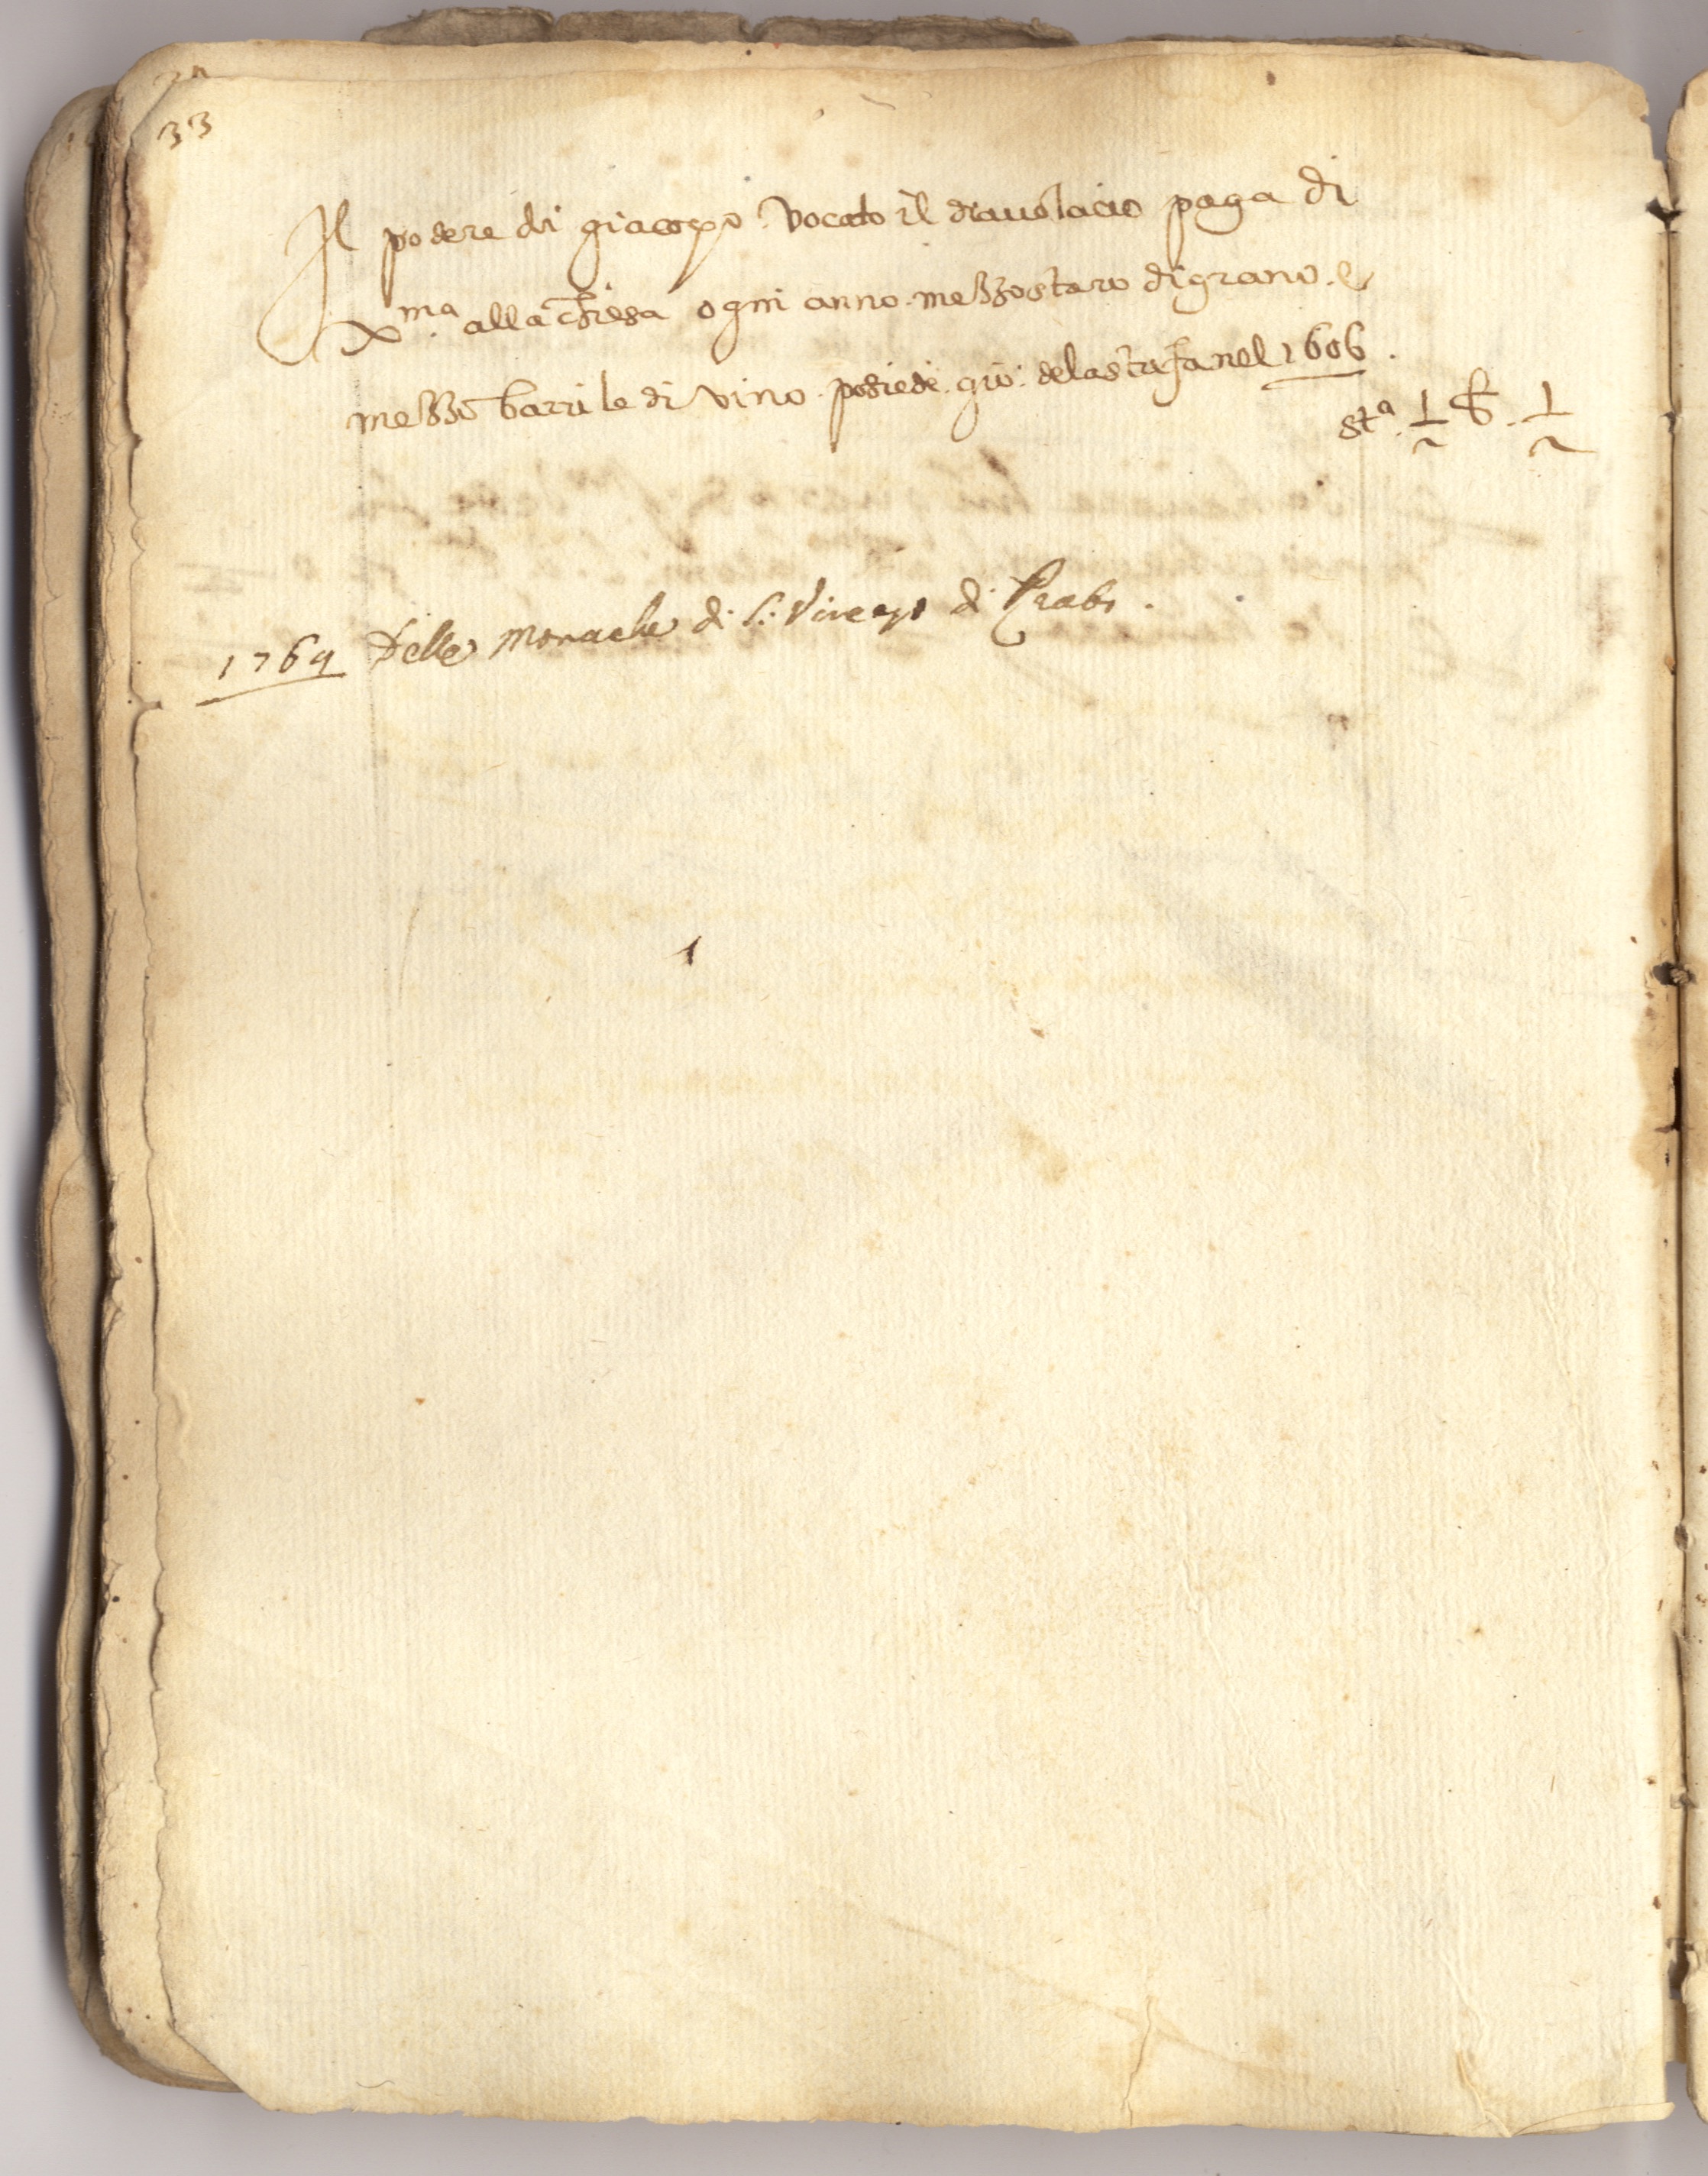 33
Il podere di giacopo vocato il diauolacio paga di
Xma. alla chiesa ogni anno. mezzo staro di grano. e
mezzo barrile di vino. posiede. gio: dela stufa nel 1606.
sta. 1/2 b. 1/2
1764 Delle Monache di S: Vincenzo di Prato.